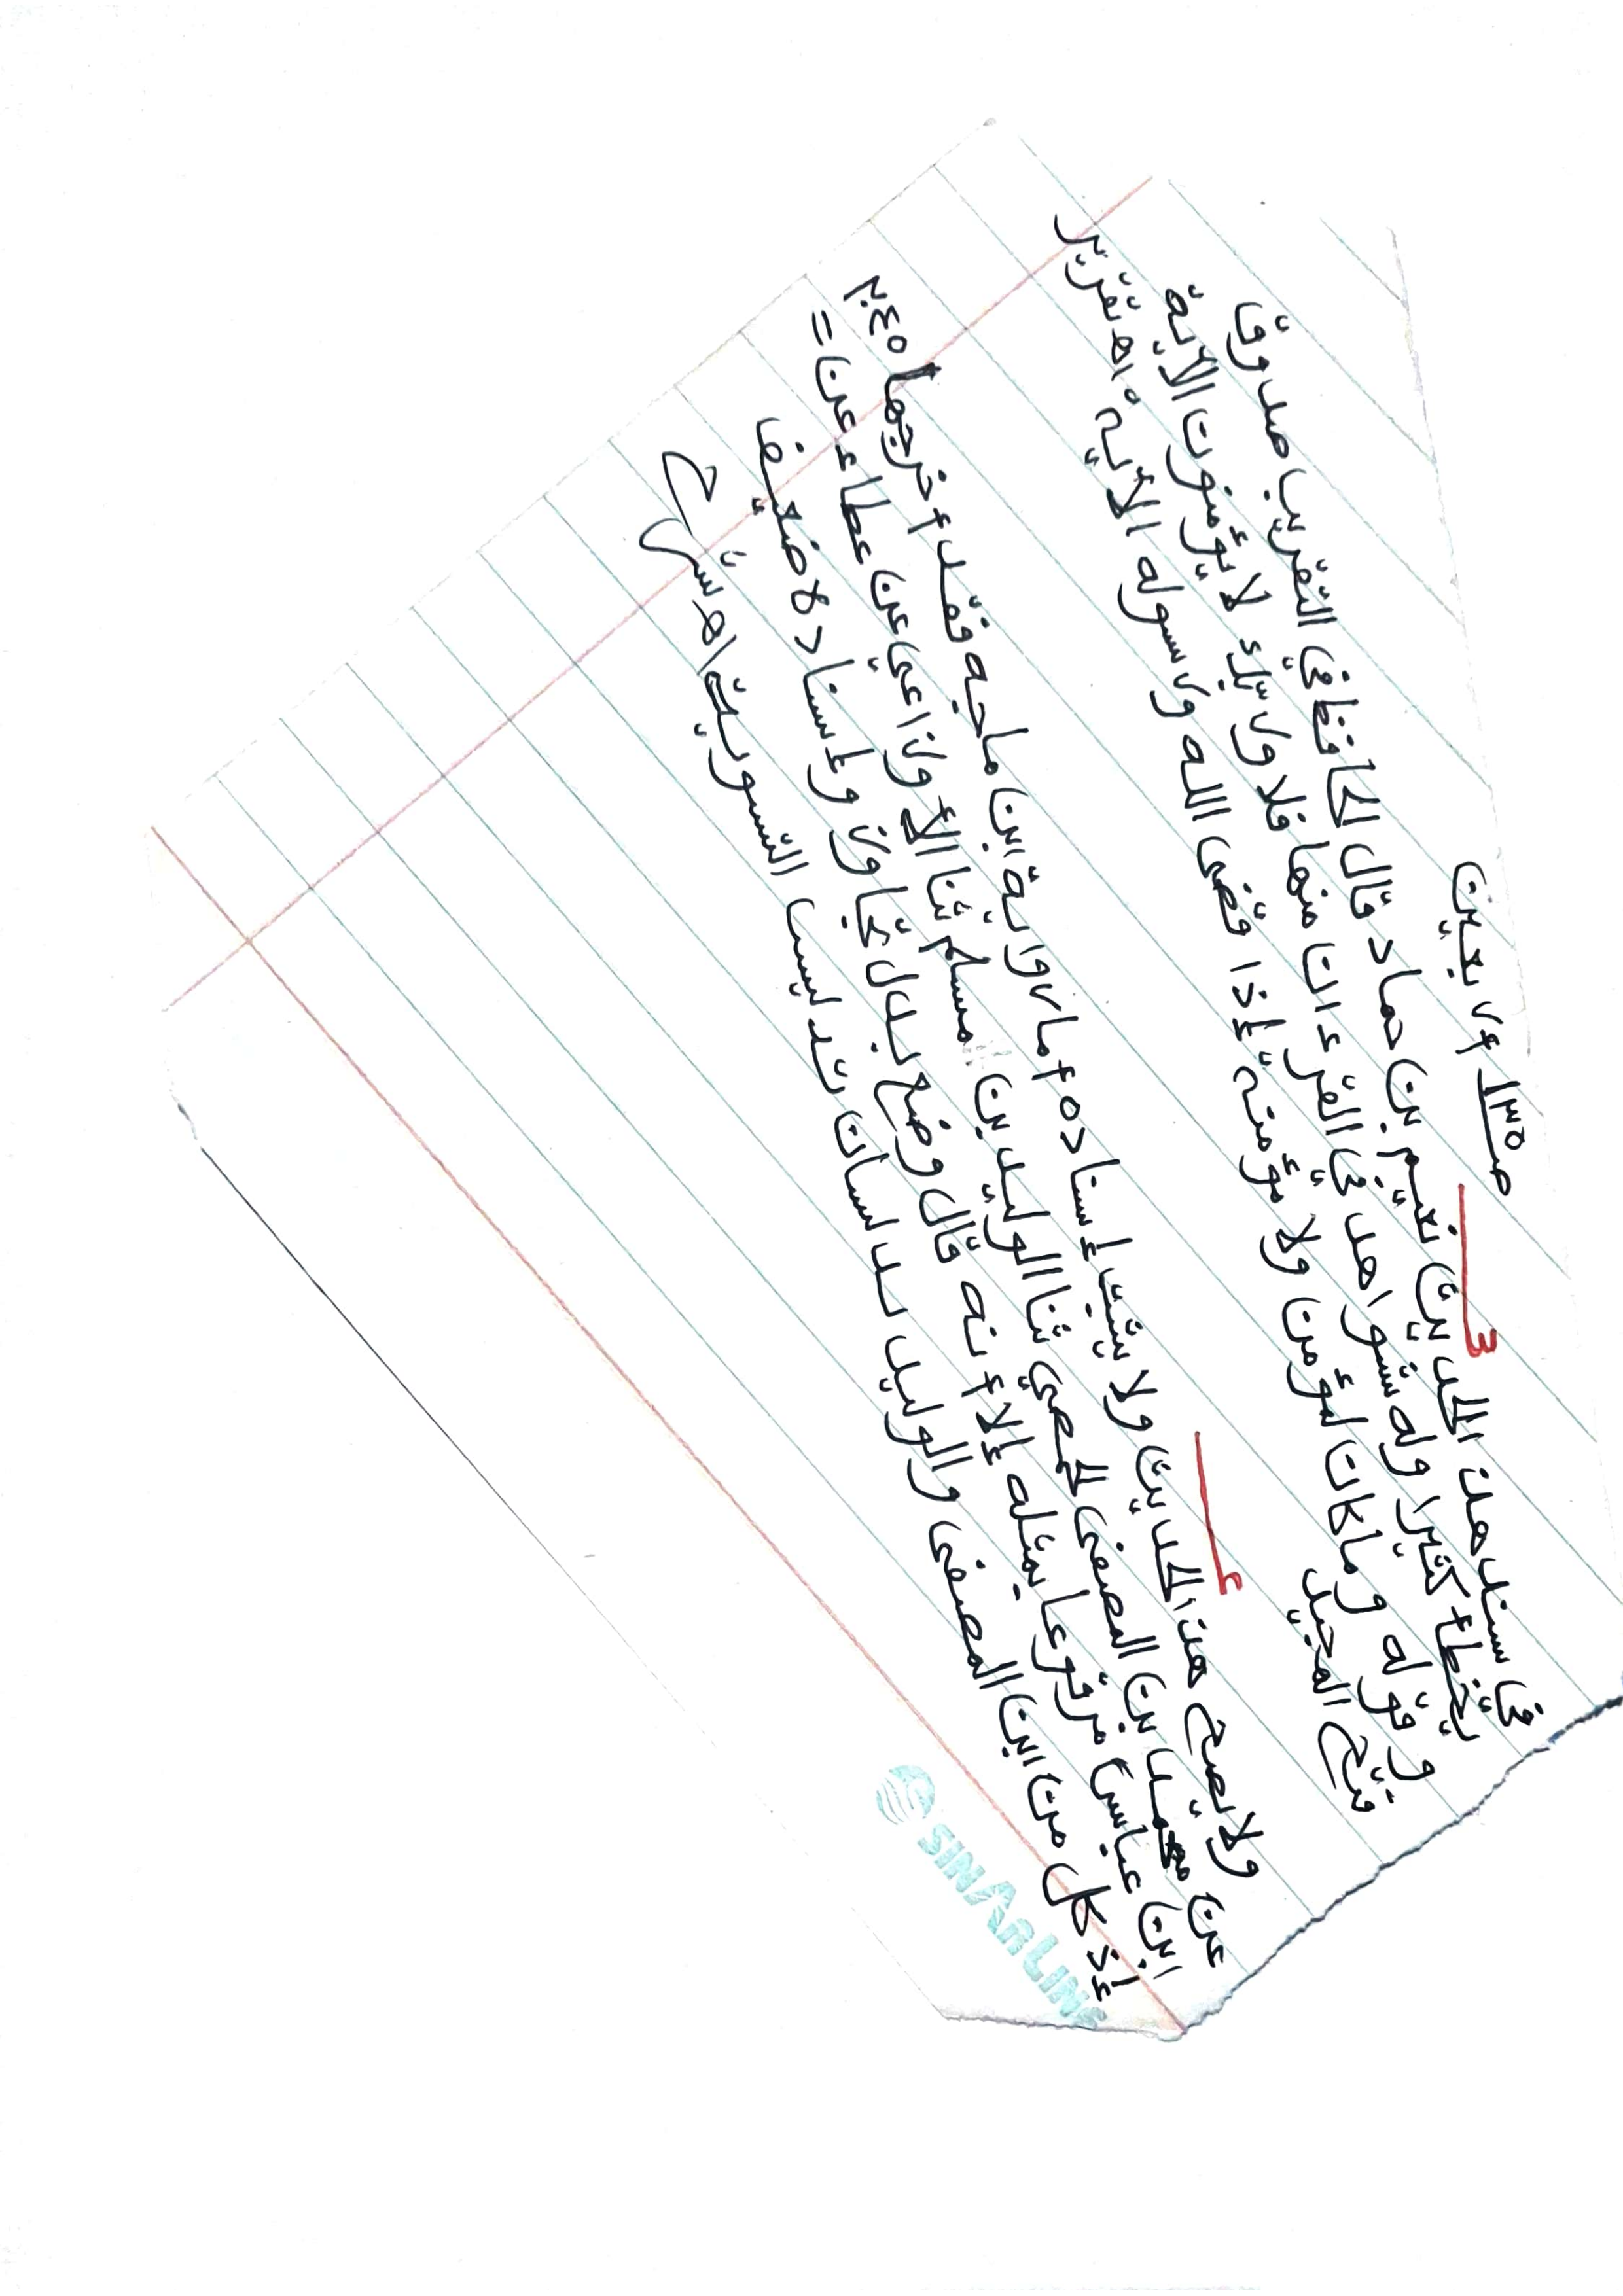 صـ١٣٥ أربعين
في سند هذا الحديث نعيم بن حماد قال الحافظ في التقريب صدوق
يخطأ كثيرا وله شواهد في القرءان منها فلا وربك لا يؤمنون الآية
وقوله وما كان لمؤمن ولا مؤمنة إذا قضى الله ورسوله الآية اهـ تقرير
فتح المجيد
ولا يصح هذا الحديث ولا يثبت إسناده أما رواية ابن ماجه فقد أخرجها ٢٠٤٥
عن محمد بن المصفى الحمصي ثنا الوليد بن مسلم ثنا الأوزاعي عن عطاء عن =
ابن عباس مرفوعا بمثله إلا أنه قال وضع بدل تجاوز وإسناده ضعيف
إذ كل من ابن المصفى والوليد يدلسان تدليس التسوية اهـ شرح
SINARLINE